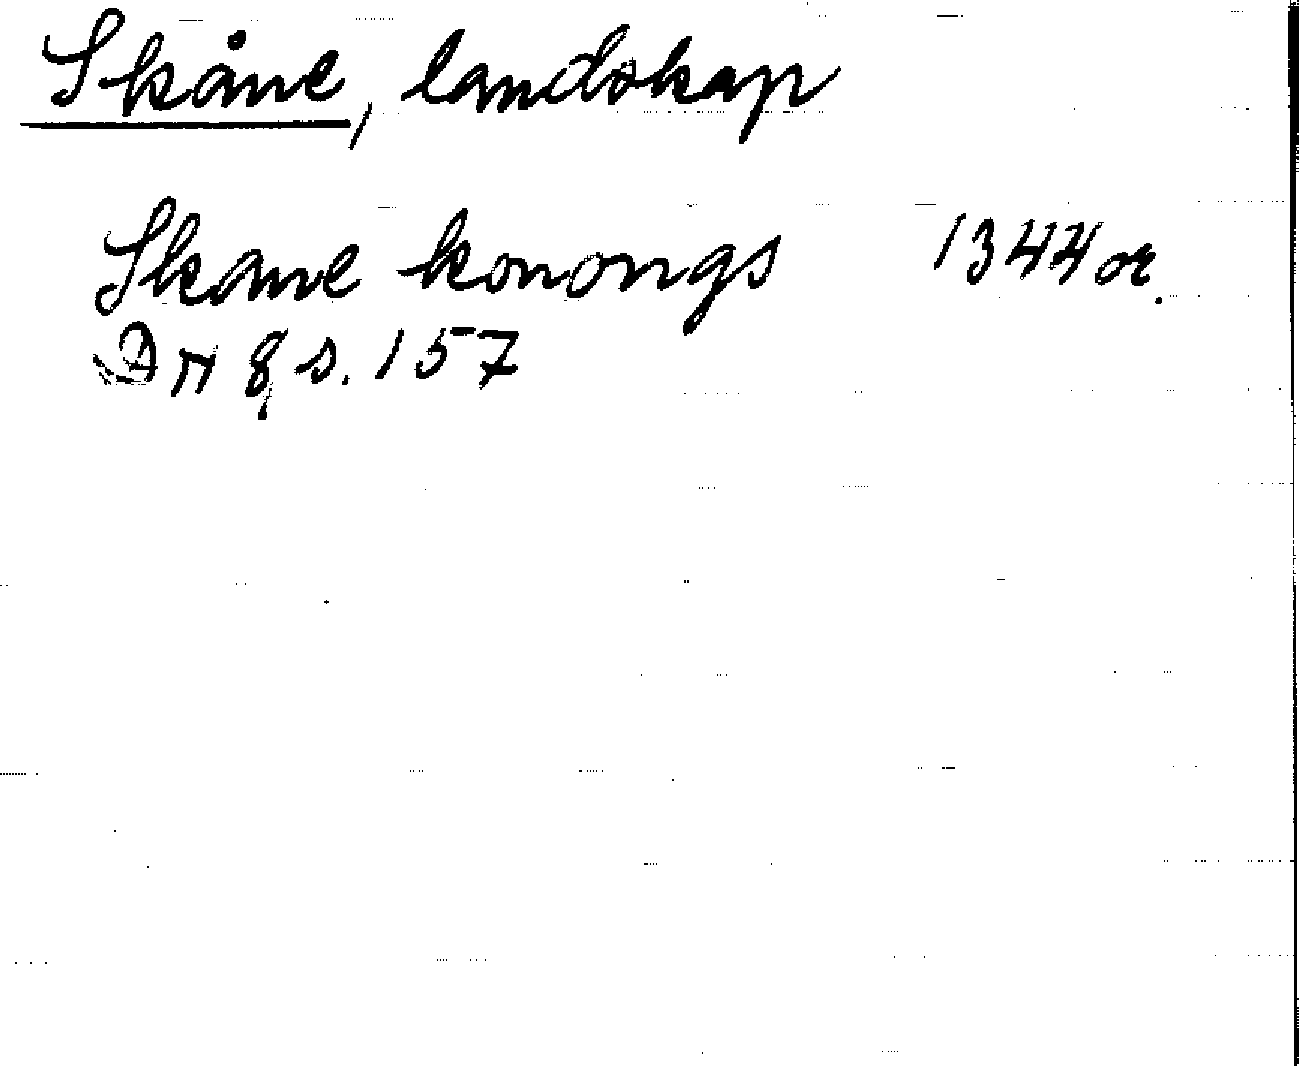 Skåne, landskap
Skane konongs 1344 or.
DN 8 s. 157